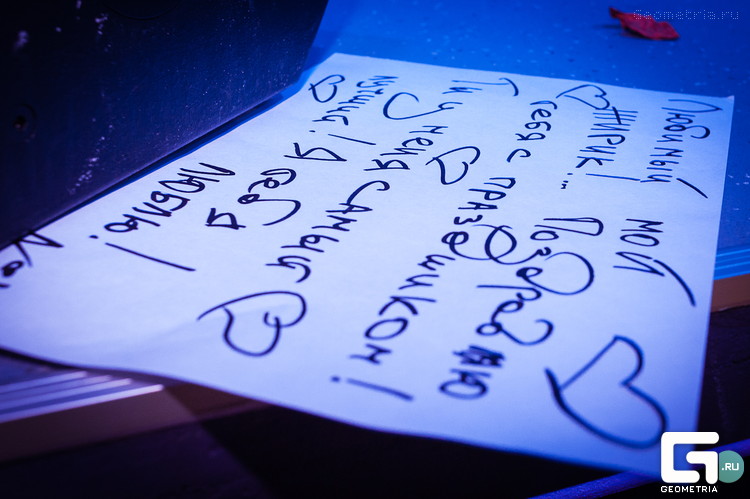 Geometria.ru
Любимый мой
ЖИРИК!... Поздравляю
себя с праздником!
Ты у меня самый
лучший! Я себя
люблю!
.RU
GEOMETRIA